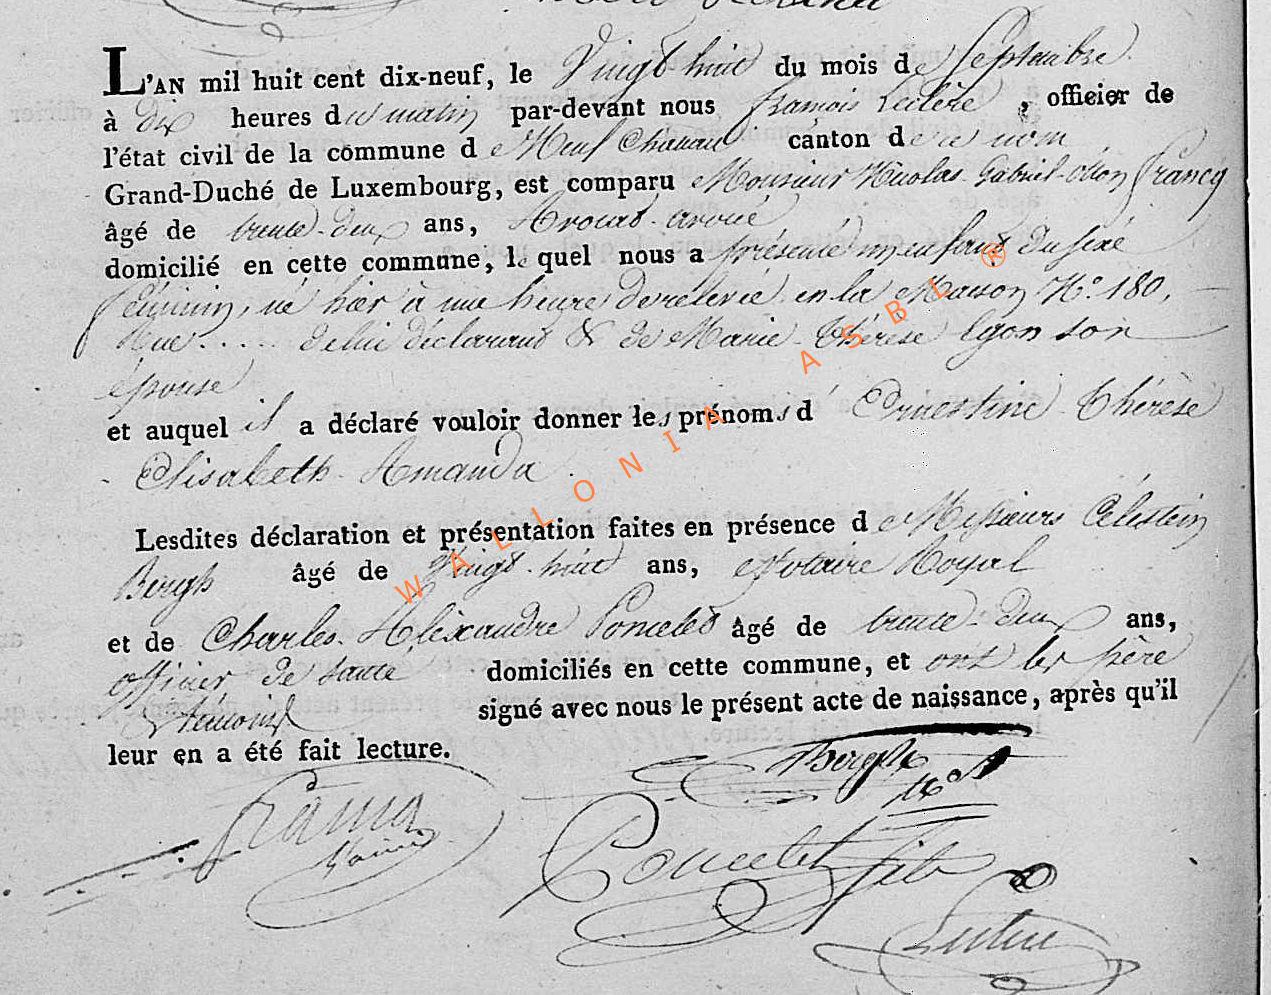 L'AN mil huit cent dix-neuf, le Vingt huit du mois de Septembre
à dix heures du matin par-devant nous François Leclère, officier de
l'état civil de la commune de Neuf Chateau canton de ce nom
Grand-Duché de Luxembourg, est comparu Monsieur Nicolas Gabriel Odon Francq
âgé de trente-deux ans, Avocat-avoué
domicilié en cette commune, le quel nous a présenté un enfant du sexe
féminin, né hier à une heure de relevée en la Maison No. 180,
Rue ..... de lui déclarant & de Marie Thérèse Lyon son
épouse
et auquel il a déclaré vouloir donner les prénoms d Ernestine Thérèse
Elisabeth Amanda
Lesdites déclaration et présentation faites en présence de Messieurs Célestin
Bergh âgé de Vingt-huit ans, Notaire Royal
et de Charles Alexandre Poncelet âgé de trente-deux ans,
officier de santé domiciliés en cette commune, et ont les père
& témoins signé avec nous le présent acte de naissance, après qu'il
leur en a été fait lecture.
Bergh
Poncelet fils
WALLONIA ASBL ®